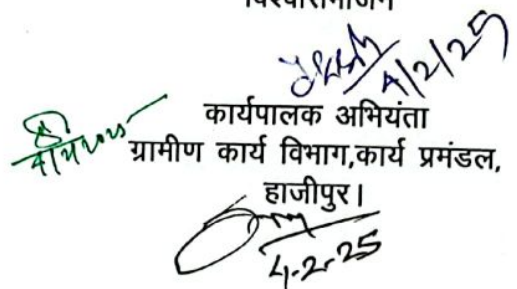 विश्वासभाजन
4/2/25
कार्यपालक अभियंता
4/2/2025
ग्रामीण कार्य विभाग,कार्य प्रमंडल,
हाजीपुर।
4-2-25